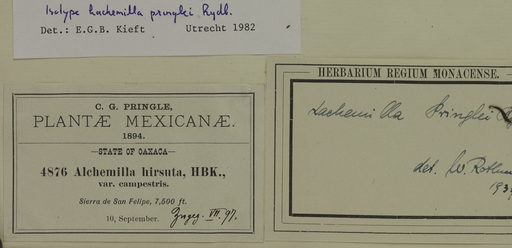 Isotype Lachemilla pringlei Rydb.
Det.: E.G.B. Kieft Utrecht 1982
C. G. PRINGLE,
PLANTÆ MEXICANÆ.
1894.
—STATE OF OAXACA—
4876 Alchemilla hirsuta, HBK.,
var. campestris.
Sierra de San Felipe, 7,500 ft.
10, September.
VII. 97.
HERBARIUM REGIUM MONACENSE.
Lachemilla Pringlei
det. W. Rothm